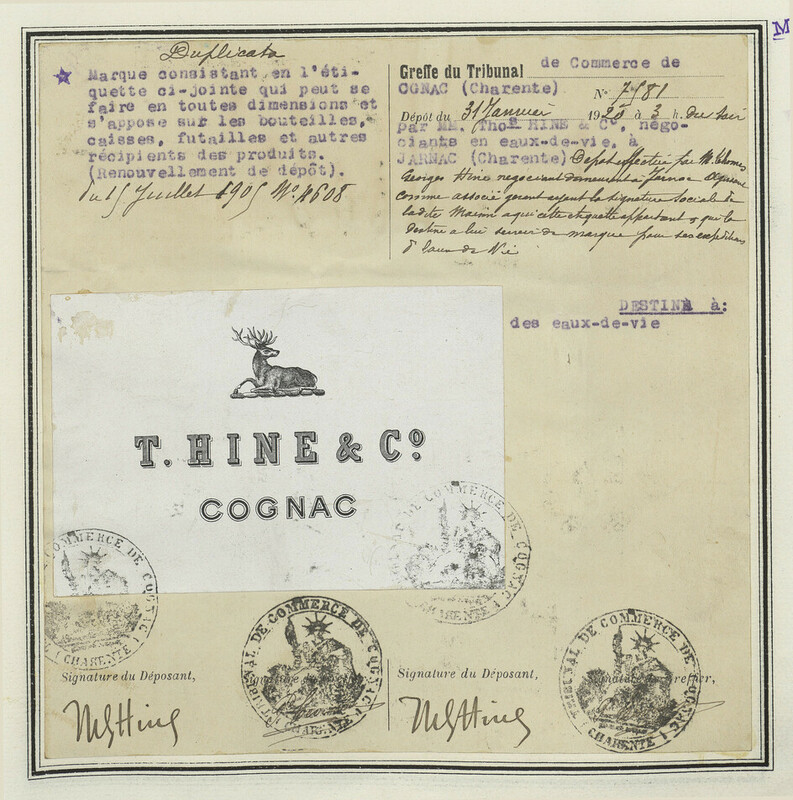 M
Duplicata
Marque consistant en l'éti-
quette ci-jointe qui peut se
faire en toutes dimensions et
s'appose sur les bouteilles,
caisses, futailles et autres
récipients des produits.
(Renouvellement de dépôt).
du 15 Juillet 1905 No. 4608
Greffe du Tribunal de Commerce de
OGNAC (Charente) No 7581
Dépôt du 31 Janvier 1920 à 3 h. du soir
par MM. Thos HINE & Co, négo-
ciants en eaux-de-vie, à
JARNAC (Charente) Dépôt effectué par M. Thomas
Georges Hine négociant demeurant à Jarnac
comme associé gérant ayant la signature sociale de
ladite Maison à qui cette étiquette appartient & qui la
destine à lui servir de marque pour ses expéditions
d'eaux de vie
DESTINÉ à:
des eaux-de-vie
T. HINE & Co
COGNAC
TRIBUNAL DE COMMERCE DE COGNAC
CHARENTE
COMMERCE DE COGNAC
CHARENTE
TRIBUNAL DE COMMERCE DE COGNAC
CHARENTE
TRIBUNAL DE COMMERCE DE COGNAC
CHARENTE
Signature du Déposant,
Signature du Greffier,
Signature du Déposant,
Signature du Greffier,
Hine
Hine